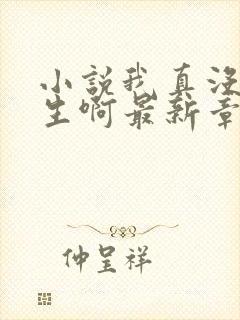 小說我真沒
生啊最新章
仲呈祥